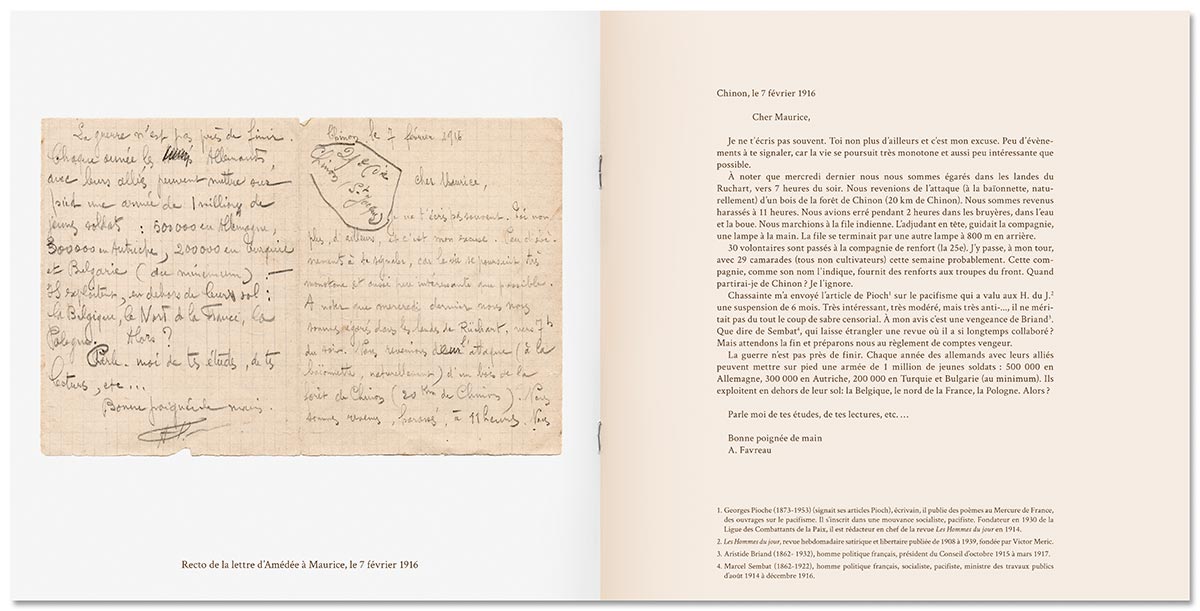 La guerre n'est pas près de finir.
Chaque année les Allemands,
avec leurs alliés peuvent mettre sur
pied une armée de 1 million de
jeunes soldats : 500000 en Allemagne,
300000 en Autriche, 200000 en Turquie
et Bulgarie (au minimum). —
Ils exploitent, en dehors de leur sol :
la Belgique, le Nord de la France, la
Pologne. Alors ?
Parle-moi de tes études, de tes
lectures, etc...
Bonne poignée de main.
Chinon le 7 février 1916
Chinon (St Jacques)
Cher Maurice,
Je ne t'écris pas souvent. Toi non
plus, d'ailleurs, et c'est mon excuse. Peu d'évè-
nements à te signaler, car la vie se poursuit très
monotone et aussi peu intéressante que possible.
A noter que mercredi dernier nous nous
sommes égarés dans les landes de Ruchart, vers 7h
du soir. Nous revenions de l'attaque (à la
baïonnette, naturellement) d'un bois de la
forêt de Chinon (20 Km de Chinon). Nous
sommes revenus, harassés, à 11 heures. Nous
Recto de la lettre d'Amédée à Maurice, le 7 février 1916
Chinon, le 7 février 1916
Cher Maurice,
Je ne t'écris pas souvent. Toi non plus d'ailleurs et c'est mon excuse. Peu d'évène-
ments à te signaler, car la vie se poursuit très monotone et aussi peu intéressante que
possible.
À noter que mercredi dernier nous nous sommes égarés dans les landes du
Ruchart, vers 7 heures du soir. Nous revenions de l'attaque (à la baïonnette, natu-
rellement) d'un bois de la forêt de Chinon (20 km de Chinon). Nous sommes revenus
harassés à 11 heures. Nous avions erré pendant 2 heures dans les bruyères, dans l'eau
et la boue. Nous marchions à la file indienne. L'adjudant en tête, guidait la compagnie,
une lampe à la main. La file se terminait par une autre lampe à 800 m en arrière.
30 volontaires sont passés à la compagnie de renfort (la 25e). J'y passe, à mon tour,
avec 29 camarades (tous non cultivateurs) cette semaine probablement. Cette com-
pagnie, comme son nom l'indique, fournit des renforts aux troupes du front. Quand
partirai-je de Chinon ? Je l'ignore.
Chassainte m'a envoyé l'article de Pioch¹ sur le pacifisme qui a valu aux H. du J.²
une suspension de 6 mois. Très intéressant, très modéré, mais très anti-..., il ne méri-
tait pas du tout le coup de sabre censorial. À mon avis c'est une vengeance de Briand³.
Que dire de Sembat⁴, qui laisse étrangler une revue où il a si longtemps collaboré ?
Mais attendons la fin et préparons nous au règlement de comptes vengeur.
La guerre n'est pas près de finir. Chaque année des allemands avec leurs alliés
peuvent mettre sur pied une armée de 1 million de jeunes soldats : 500 000 en
Allemagne, 300 000 en Autriche, 200 000 en Turquie et Bulgarie (au minimum). Ils
exploitent en dehors de leur sol: la Belgique, le nord de la France, la Pologne. Alors ?
Parle moi de tes études, de tes lectures, etc. ...
Bonne poignée de main
A. Favreau
1. Georges Pioche (1873-1953) (signait ses articles Pioch), écrivain, il publie des poèmes au Mercure de France,
des ouvrages sur le pacifisme. Il s'inscrit dans une mouvance socialiste, pacifiste. Fondateur en 1930 de la
Ligue des Combattants de la Paix, il est rédacteur en chef de la revue Les Hommes du jour en 1914.
2. Les Hommes du jour, revue hebdomadaire satirique et libertaire publiée de 1908 à 1939, fondée par Victor Meric.
3. Aristide Briand (1862- 1932), homme politique français, président du Conseil d'octobre 1915 à mars 1917.
4. Marcel Sembat (1862-1922), homme politique français, socialiste, pacifiste, ministre des travaux publics
d'août 1914 à décembre 1916.